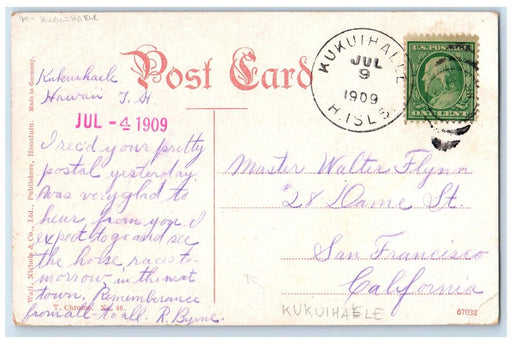 40- KUKUIHAELE
Post Card
Made in Germany.
Wall, Nichols & Co., Ltd., Publishers, Honolulu.
KUKUIHAELE
JUL
9
1909
H. ISLS.
U.S. POSTAGE
ONE CENT
Kukuihaele
Hawaii T. H
JUL - 4 1909
I rec'd your pretty
postal yesterday
was very glad to
hear from you. I
expect to go and see
the horse races to-
morrow in the next
town. Remembrance
from all to all. R. Byrne.
Master Walter Flynn
#28 Dame St.
San Francisco
California
T. Chromo. No. 46.
KUKUIHAELE
67032